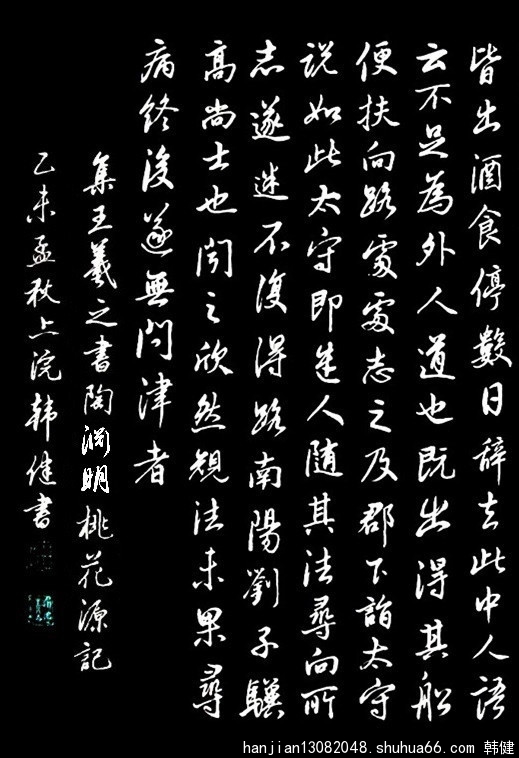 皆出酒食停數日辭去此中人語
云不足為外人道也既出得其船
便扶向路處處志之及郡下詣太守
説如此太守即遣人随其往尋向所
志遂迷不復得路南陽劉子驥
高尚士也聞之欣然規往未果尋
病終後遂無問津者
集王羲之書陶淵明桃花源記
乙未孟秋上浣韩健書
hanjian13082048.shuhua66.com 韩健